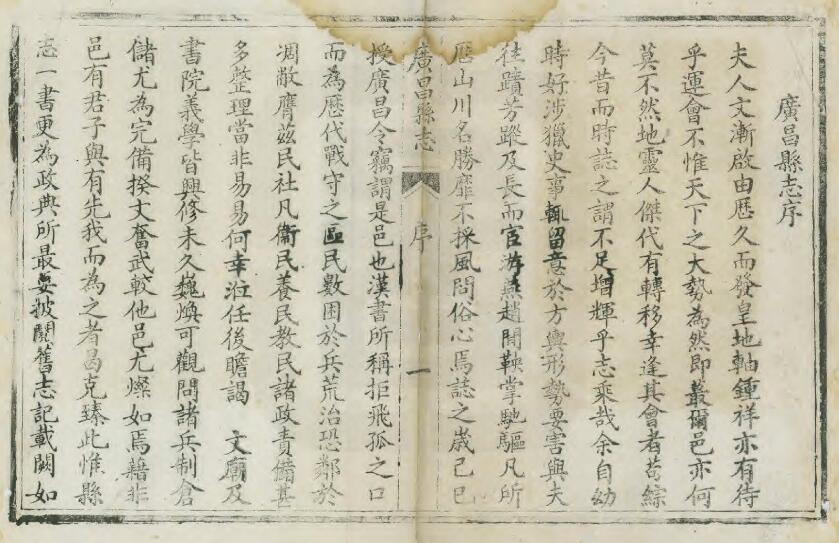 廣昌縣志序
夫人文漸啟由歷久而發皇地軸鍾祥亦有待
乎運會不惟天下之大勢為然即蕞爾邑亦何
莫不然地靈人傑代有轉移幸逢其會者苟綜
今昔而時誌之謂不足增輝乎志乘哉余自幼
時好涉獵史事輒留意於方輿形勢要害與夫
往蹟芳蹤及長而宦游燕趙間鞅掌馳驅凡所
歷山川名勝靡不採風問俗心焉誌之歲己巳
廣昌縣志
序
一
授廣昌令竊謂是邑也漢書所稱拒飛孤之口
而為歷代戰守之區民數困於兵荒治恐鄰於
凋敝膺茲民社凡衞民養民教民諸政責備甚
多整理當非易易何幸涖任後瞻謁 文廟及
書院義學皆興修未久巍煥可觀問諸兵制倉
儲尤為完備揆文奮武較他邑尤燦如焉藉非
邑有君子與有先我而為之者曷克臻此惟縣
志一書更為政典所最要披閱舊志記載闕如